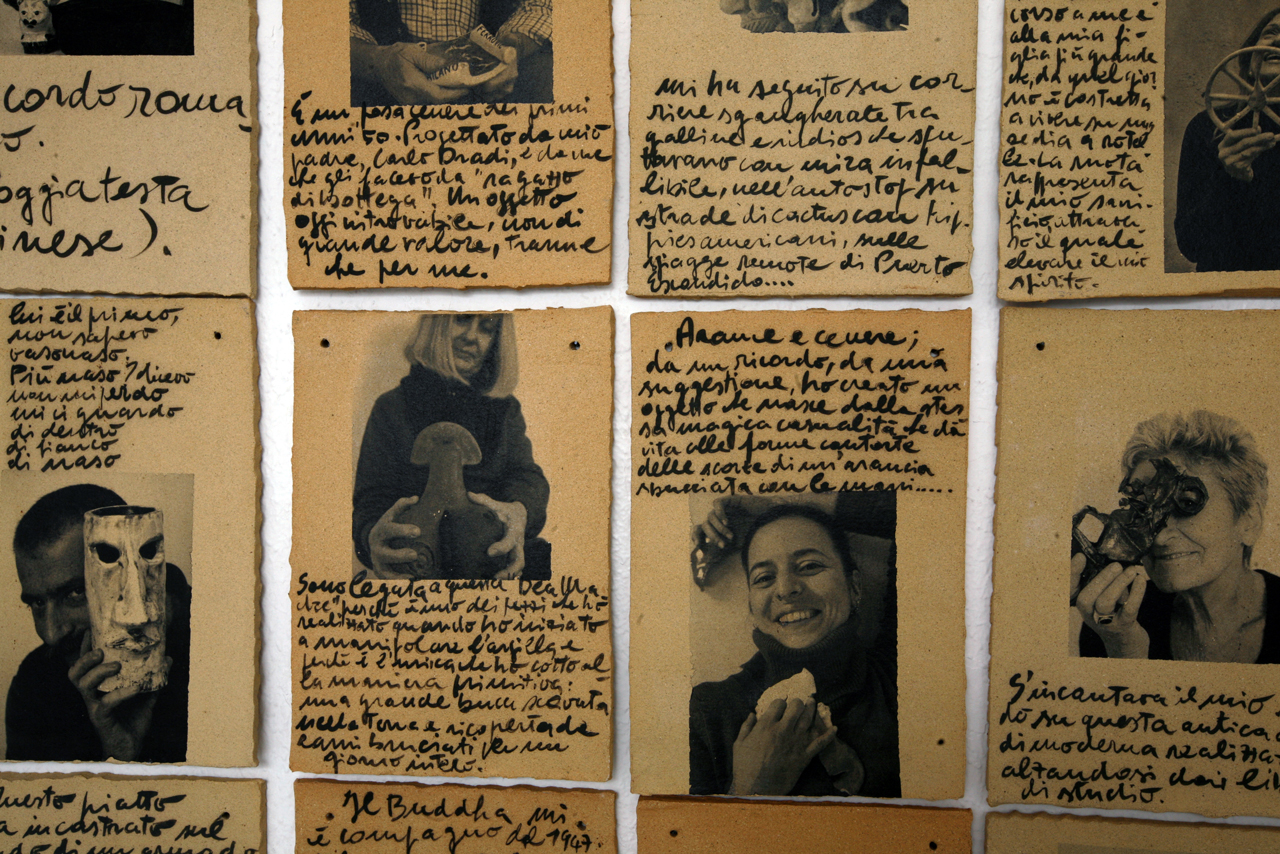 cordo roma
o.
oggiatesta
inese).
MILANO
È un posacenere dei primi
anni 60. Progettato da mio
padre, Carlo Bradi, e da me
che gli facevo da "ragazzo
di bottega". Un oggetto
oggi introvabile, non di
grande valore, tranne
che per me.
mi ha seguito su cor-
riere sgangherate tra
galline e indios che spu-
tavano con mira infal-
libile, nell'autostop su
strade di cactus con hip-
pies americani, sulle
spiagge remote di Puerto
Escondido....
corso a me e
alla mia fi-
glia più grande
che, da quel gior
no è costretta
a vivere su una
sedia a rotel
le. La ruota
rappresenta
il mio sacri-
ficio attraver
so il quale
elevare il mio
spirito.
Lui è il primo,
non sapevo
vasonaso.
Più naso? dicevo
non mi perdo
mi ci guardo
di dentro
di fianco
di naso
Sono legata a questa "Dea Ma-
dre" perché è uno dei pezzi che ho
realizzato quando ho iniziato
a manipolare l'argilla e
perché è l'unica che ho cotto al
la maniera primitiva:
una grande buca scavata
nella terra e ricoperta de
rami bruciati per un
giorno intero.
Arame e cenere;
da un ricordo, da una
suggestione, ho creato un
oggetto che nasce dalla stes
sa magica casualità che dà
vita alle forme contorte
delle scorze di un'arancia
sbucciata con le mani.....
S'incantava il mio
do su questa antica
di moderna realizza-
alzandosi dai li
di studio.
Questo piatto
a incastrato nel
do di un armado
Il Buddha mi
è compagno dal 1947.